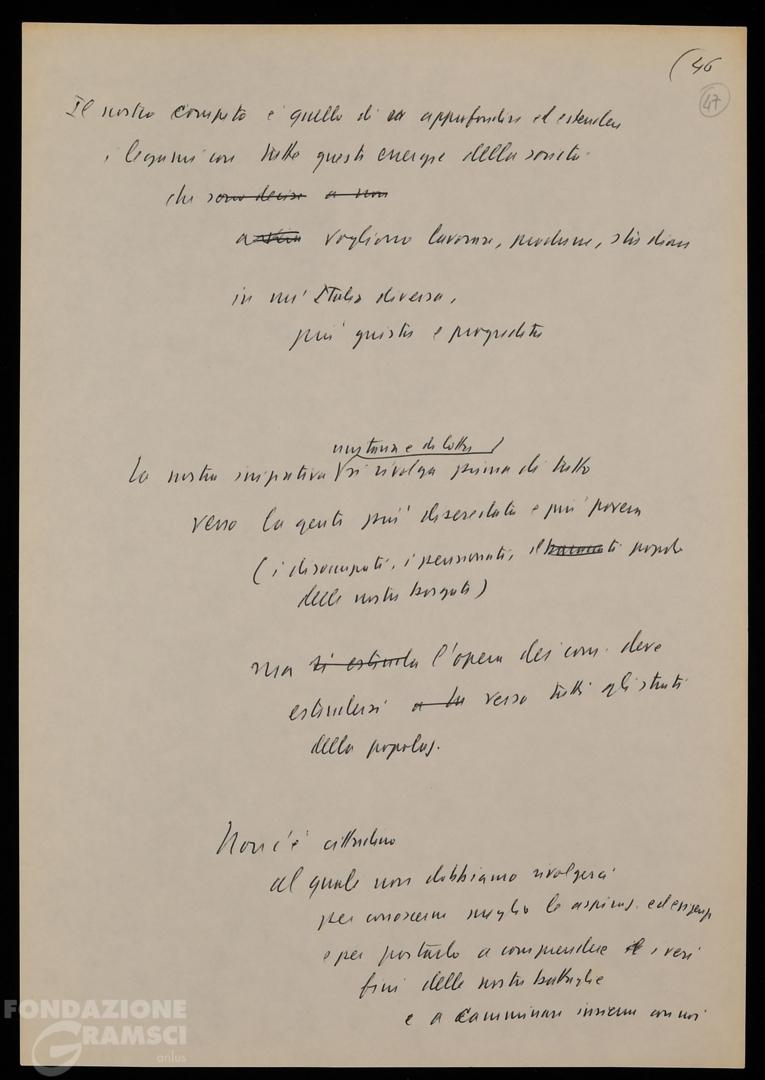 (46
47
Il nostro compito è quello di approfondire ed estendere
i legami con tutte queste energie della società
che sono decise a non
a vogliono lavorare, produrre, studiare
in un'Italia diversa,
più giusta e progredita
unitaria e di lotta
La nostra iniziativa si rivolga prima di tutto
verso la gente più diseredata e più povera
(i disoccupati, i pensionati, il popolo
delle nostre borgate)
ma si estenda l'opera dei com. deve
estendersi a tu verso tutti gli strati
della popolaz.
Non c'è cittadino
al quale non dobbiamo rivolgerci
per conoscerne meglio le aspiraz. ed esigenze
e per portarlo a comprendere il i veri
fini delle nostre battaglie
e a camminare insieme con noi
FONDAZIONE
GRAMSCI
onlus